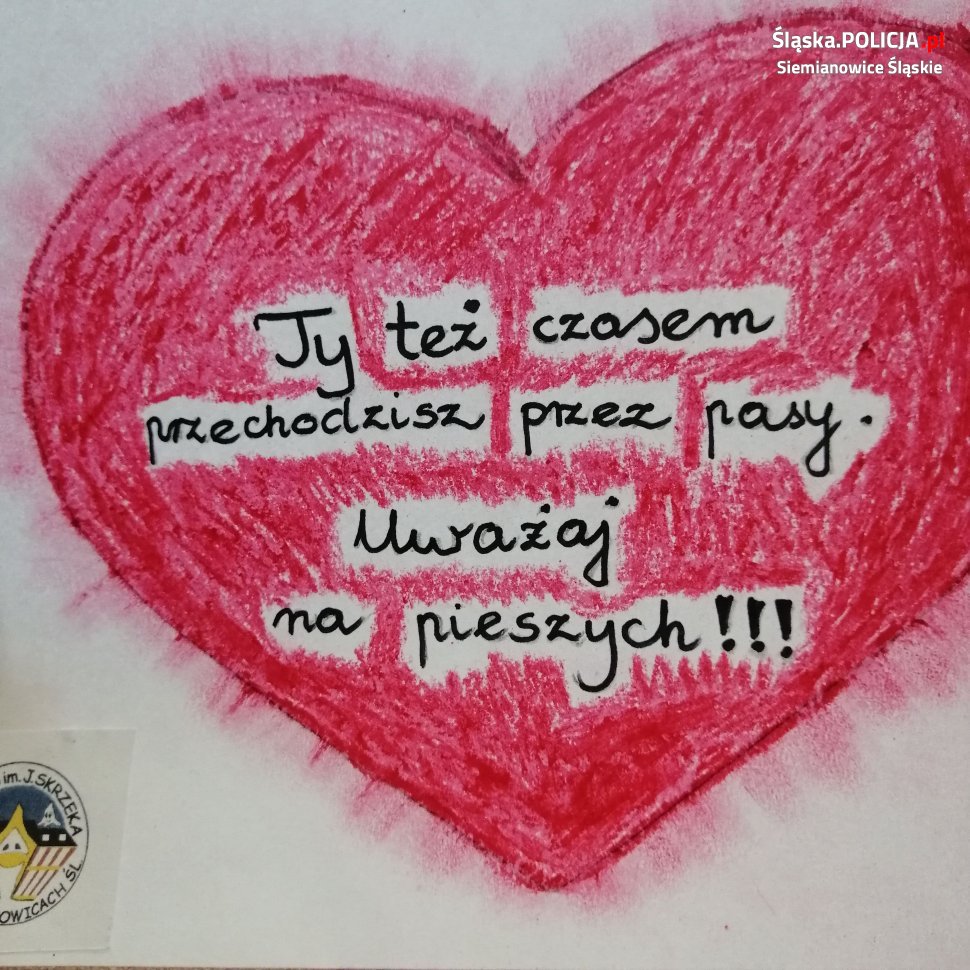 Śląska.POLICJA.pl
Siemianowice Śląskie
Ty też czasem
przechodzisz przez pasy.
Uważaj
na pieszych!!!
im. J. SKRZEKA
OWICACH ŚL